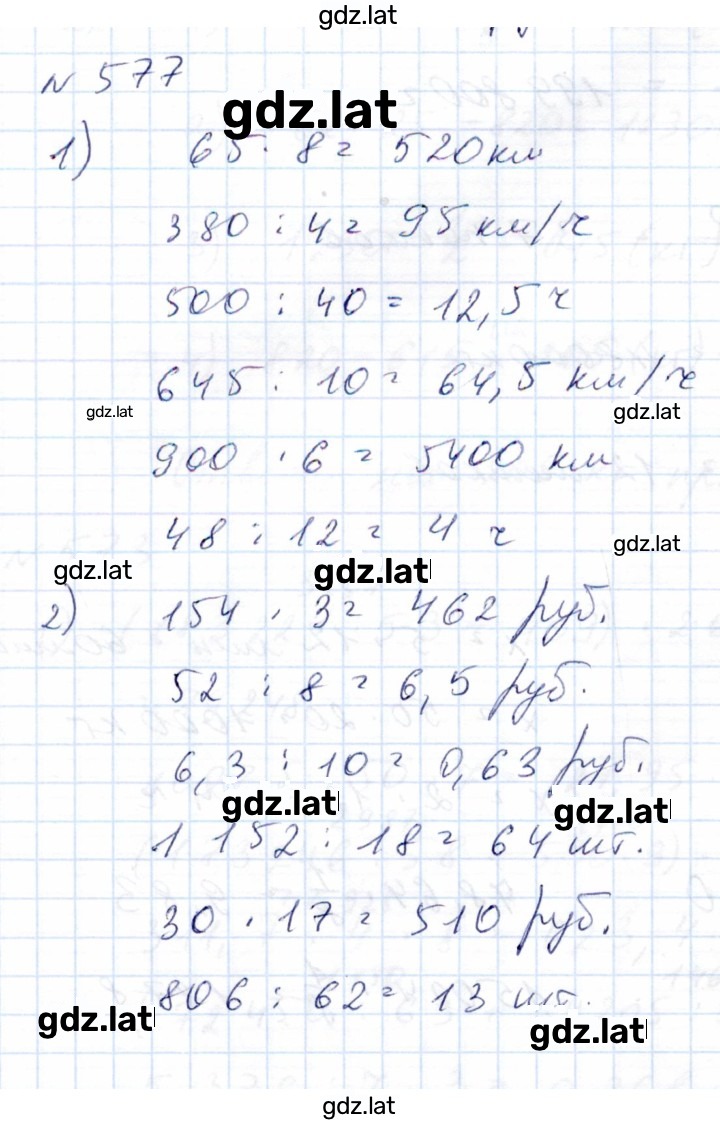 gdz.lat
N 577
gdz.lat
1) 65 · 8 = 520 км
380 : 4 = 95 км/ч
500 : 40 = 12,5 ч
645 : 10 = 64,5 км/ч
gdz.lat gdz.lat
900 · 6 = 5400 км
48 : 12 = 4 ч
gdz.lat
gdz.lat gdz.lat
2) 154 · 3 = 462 руб.
52 : 8 = 6,5 руб.
6,3 : 10 = 0,63 руб.
gdz.lat gdz.lat
1 152 : 18 = 64 шт.
30 · 17 = 510 руб.
806 : 62 = 13 шт.
gdz.lat gdz.lat
gdz.lat